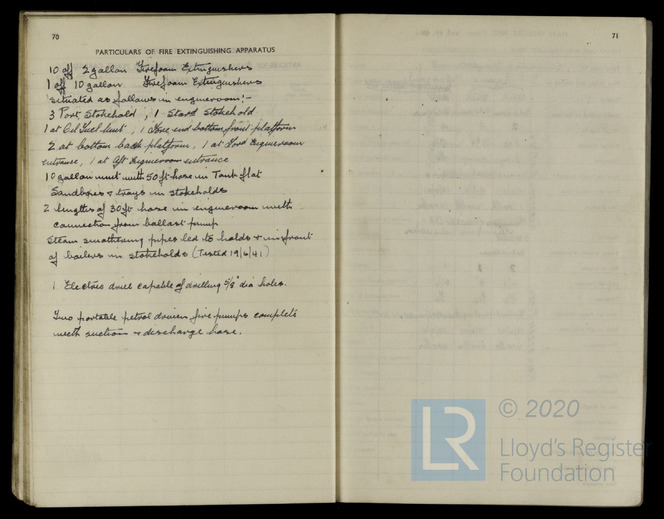 70
PARTICULARS OF FIRE EXTINGUISHING APPARATUS
10 off 2 gallon Firefoam Extinguishers
1 off 10 gallon Firefoam Extinguishers
situated as follows in engineroom:-
3 Port Stokehold, 1 Starb Stokehold
1 at Oil Fuel Unit, 1 Fore end bottom front platform
2 at bottom back platform, 1 at Ford Engineroom
entrance, 1 at Aft Engineroom entrance
10 gallon unit with 50 ft hose in Tank flat
Sandboxes & trays in stokeholds
2 lengths of 30 ft hose in engineroom with
connection from ballast pump
Steam smothering pipes led to holds & in front
of boilers in stokeholds (Tested 19/6/41)
1 Electric drill capable of drilling 5/8" dia holes.
Two portable petrol driven fire pumps complete
with suction & discharge hose.
71
LR
© 2020
Lloyd's Register
Foundation